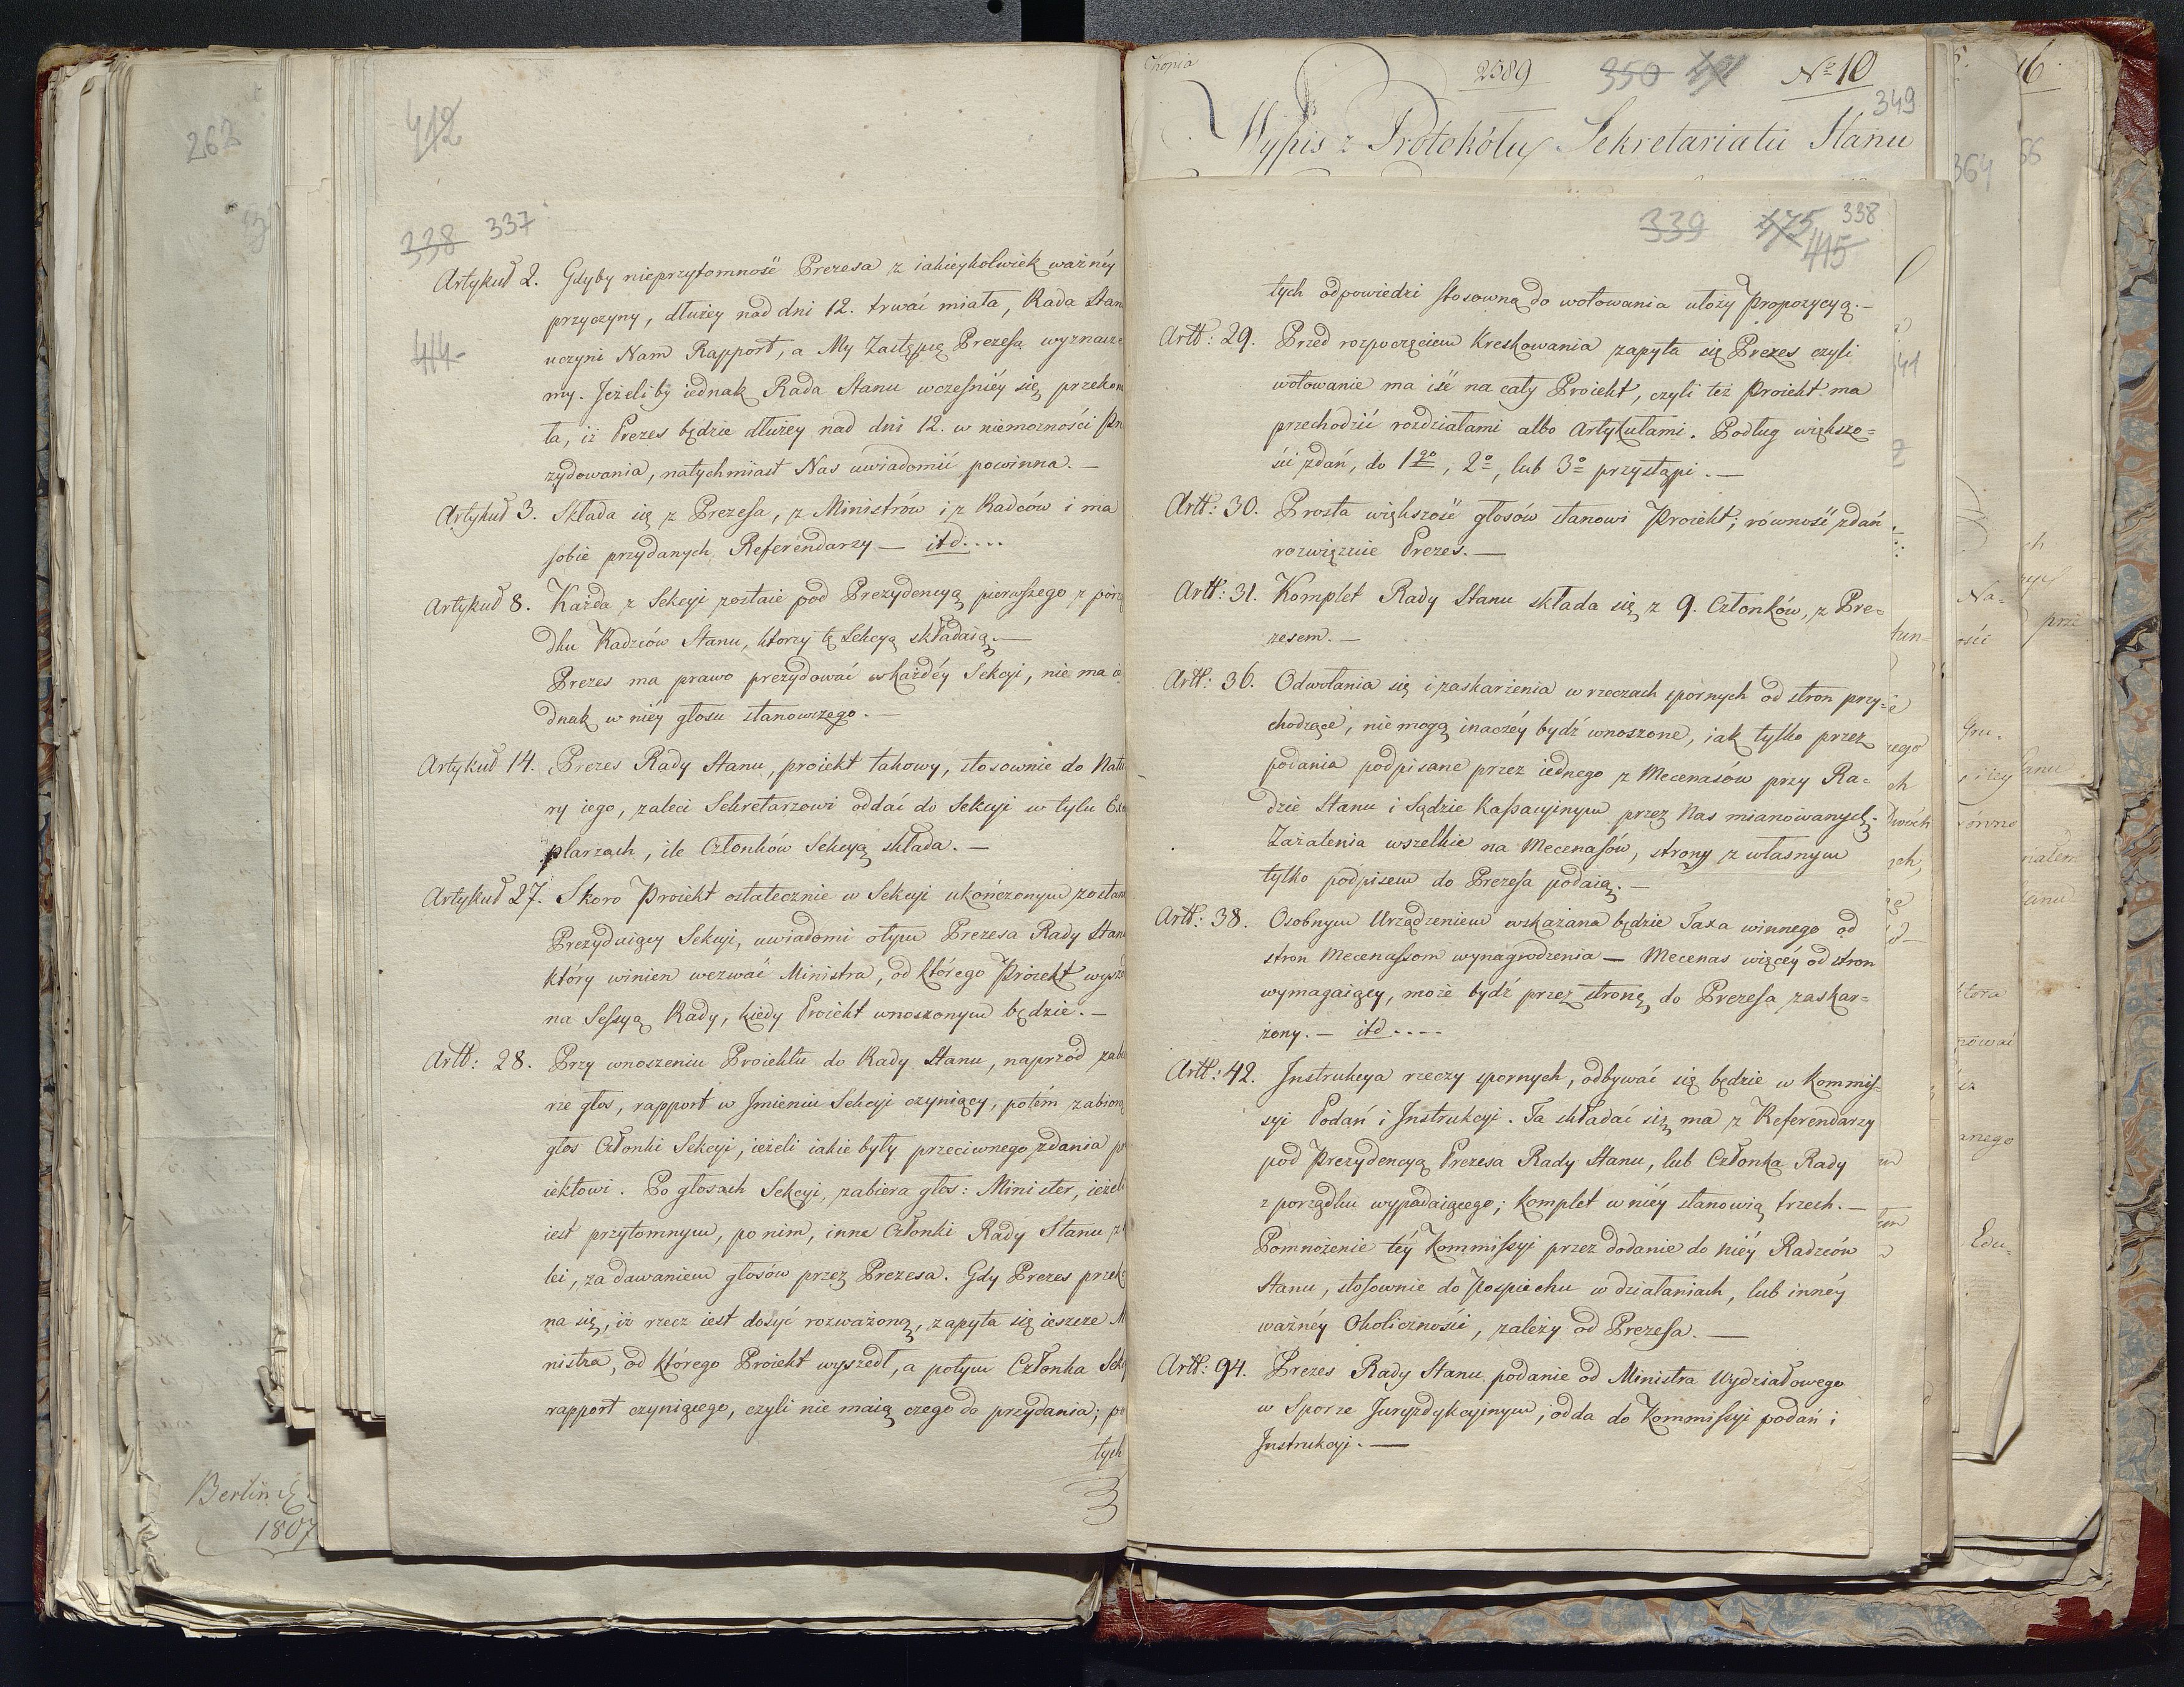 262
Berlin
1807
412
338 337
44
Artykuł 2. Gdyby nieprzytomność Prezesa z iakieykolwiek ważnéy
przyczyny, dłużey nad dni 12. trwać miała, Rada Stan
uczyni Nam Rapport, a My Zastępcę Prezesa wyznacze
my. Jeżeliby iednak Rada Stanu wcześniéy się przekon
ła, iż Prezes będzie dłużey nad dni 12. w niemożności Pre
zydowania, natychmiast Nas uwiadomić powinna. —
Artykuł 3. Składa się z Prezesa, z Ministrów i z Radców i ma
sobie przydanych Referendarzy — itd....
Artykuł 8. Każda z Sekcyi zostaie pod Prezydencyą pierwszego z porzą
dku Radzców Stanu, ktorzy tę Sekcyą składaią. —
Prezes ma prawo prezydować w każdéy Sekcyi, nie ma ie
dnak w niéy głosu stanowczego. —
Artykuł 14. Prezes Rady Stanu, proiekt takowy, stosownie do Natu
ry iego, zaleci Sekretarzowi oddać do Sekcyi w tylu Exe
plarzach, ile Członków Sekcyą składa. —
Artykuł 27. Skoro Proiekt ostatecznie w Sekcyi ukończonym zostan
Prezyduiący Sekcyi, uwiadomi otym Prezesa Rady Stanu
który winien wezwać Ministra, od którego Proiekt wyszed
na Sessyą Rady, kiedy Proiekt wnoszonym będzie. —
Artł: 28. Przy wnoszeniu Proiektu do Rady Stanu, naprzód zabi
rze głos, rapport w Imieniu Sekcyi czyniący, potém zabiorą
głos Członki Sekcyi, ieżeli iakie były przeciwnego zdania pr
iektowi. Po głosach Sekcyi, zabiera głos: Minister, ieżeli
iest przytomnym, po nim, inne Członki Rady Stanu z k
lei, za dawaniem głosów przez Prezesa. Gdy Prezes przeko
na się, iż rzecz iest dosyć rozważoną, zapyta się ieszcze M
nistra, od którego Proiekt wyszedł, a potym Członka Sek
rapport czyniącego, czyli nie maią czego do przydania; po
tych
Kopia
2589 350 No 10
349
Wypis z Protokółu Sekretariatu Stanu
339 475 338
415
tych odpowiedzi stosowną do wotowania ułoży Propozycyą. —
Artł: 29. Przed rozpoczęciem Kreskowania zapyta się Prezes czyli
wotowanie ma iść na cały Proiekt, czyli też Proiekt ma
przechodzić rozdziałami albo Artykułami. Podług większo=
ści zdań, do 1go, 2o, lub 3o przystąpi. —
Artł: 30. Prosta większość głosów stanowi Proiekt; równość zdań
rozwiąznie Prezes. —
Artł: 31. Komplet Rady Stanu składa się z 9. Członków, z Pre=
zesem. —
Artł: 36. Odwołania się i zaskarżenia w rzeczach spornych od stron przy=
chodzące, nie mogą inaczéy bydź wnoszone, iak tylko przez
podania podpisane przez iednego z Mecenasów przy Ra=
dzie Stanu i Sądzie Kassacyinym przez Nas mianowanych.
Zażalenia wszelkie na Mecenasów, strony z własnym
tylko podpisem do Prezesa podaią. —
Artł: 38. Osobnym Urządzeniem wskazana będzie Taxa winnego od
stron Mecenassom wynagrodzenia — Mecenas więcéy od stron
wymagaiący, może bydź przez stronę do Prezesa zaskar=
żony. — itd....
Artł: 42. Instrukcya rzeczy spornych, odbywać się będzie w Kommis=
syi Podań i Instrukcyi. Ta składać się ma z Referendarzy
pod Prezydencyą Prezesa Rady Stanu, lub Członka Rady
z porządku wypadaiącego; komplet w niéy stanowią trzech. —
Pomnożenie téy Kommissyi przez dodanie do niéy Radzców
Stanu, stosownie do Pospiechu w działaniach, lub innéy
ważnéy Okoliczności, zależy od Prezesa. —
Artł: 94. Prezes Rady Stanu podanie od Ministra Wydziałowego
w Sporze Juryzdykcyinym, odda do Kommissyi podań i
Instrukcyi. —
364